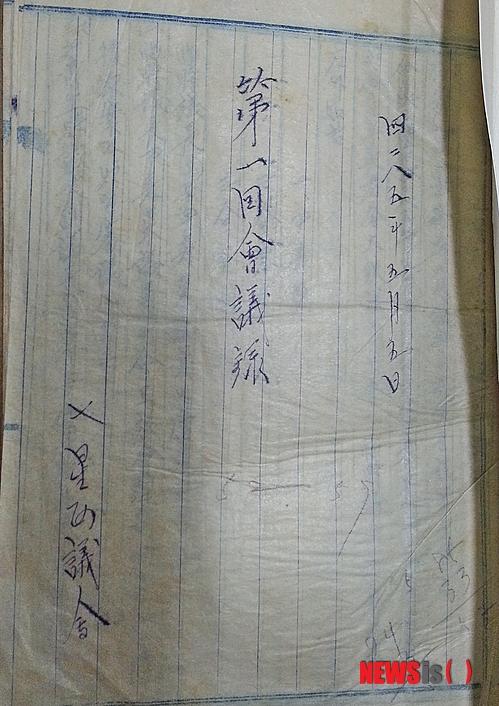 四二八五年五月五日
第一回會議録
七星面議会
NEWSis( )